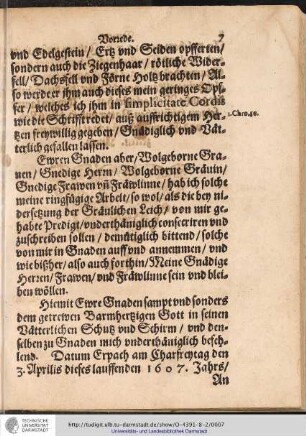 Vorrede. 7
vnd Edelgestein / Ertz vnd Seiden opfferten /
sondern auch die Ziegenhaar / rötliche Wider-
fell / Dachsfell vnd Förne Holtz brachten / Al-
so werdet ihr ihm auch dieses mein geringes Opf-
fer / welches ich ihm in simplicitate Cordis
wie die Schrifft redet / auß auffrichtigem Her-
1.Chro.40.
tzen freywillig gegeben / Gnädiglich vnd Vät-
terlich gefallen lassen.
Ewren Gnaden aber / Wolgeborne Gra-
uen / Gnedige Herrn / Wolgeborne Gräuin /
Gnedige Frawen vñ Fräwlinne / hab ich solche
meine ringfügige Arbeit / so wol / als die bey ni-
dersetzung der Gräulichen Leich / von mir ge-
habte Predigt / vnderthäniglich conseriren vnd
zuschreiben sollen / demütiglich bittend / solche
von mir in Gnaden auff vnd annemmen / vnd
wie bißher / also auch forthin / Meine Gnädige
Herren / Frawen / vnd Fräwlinne sein vnd blei-
ben wöllen.
Hiemit Ewre Gnaden sampt vnd sonders
dem getrewen Barmhertzigen Gott in seinen
Vätterlichen Schutz vnd Schirm / vnd den-
selben zu Gnaden mich vnderthäniglich befeh-
lend. Datum Erpach am Charfreytag den
3. Aprilis dieses lauffenden 1607. Jahrs /
An
TECHNISCHE
UNIVERSITÄT
DARMSTADT
http://tudigit.ulb.tu-darmstadt.de/show/O-4391-8-2/0007
Universitäts- und Landesbibliothek Darmstadt